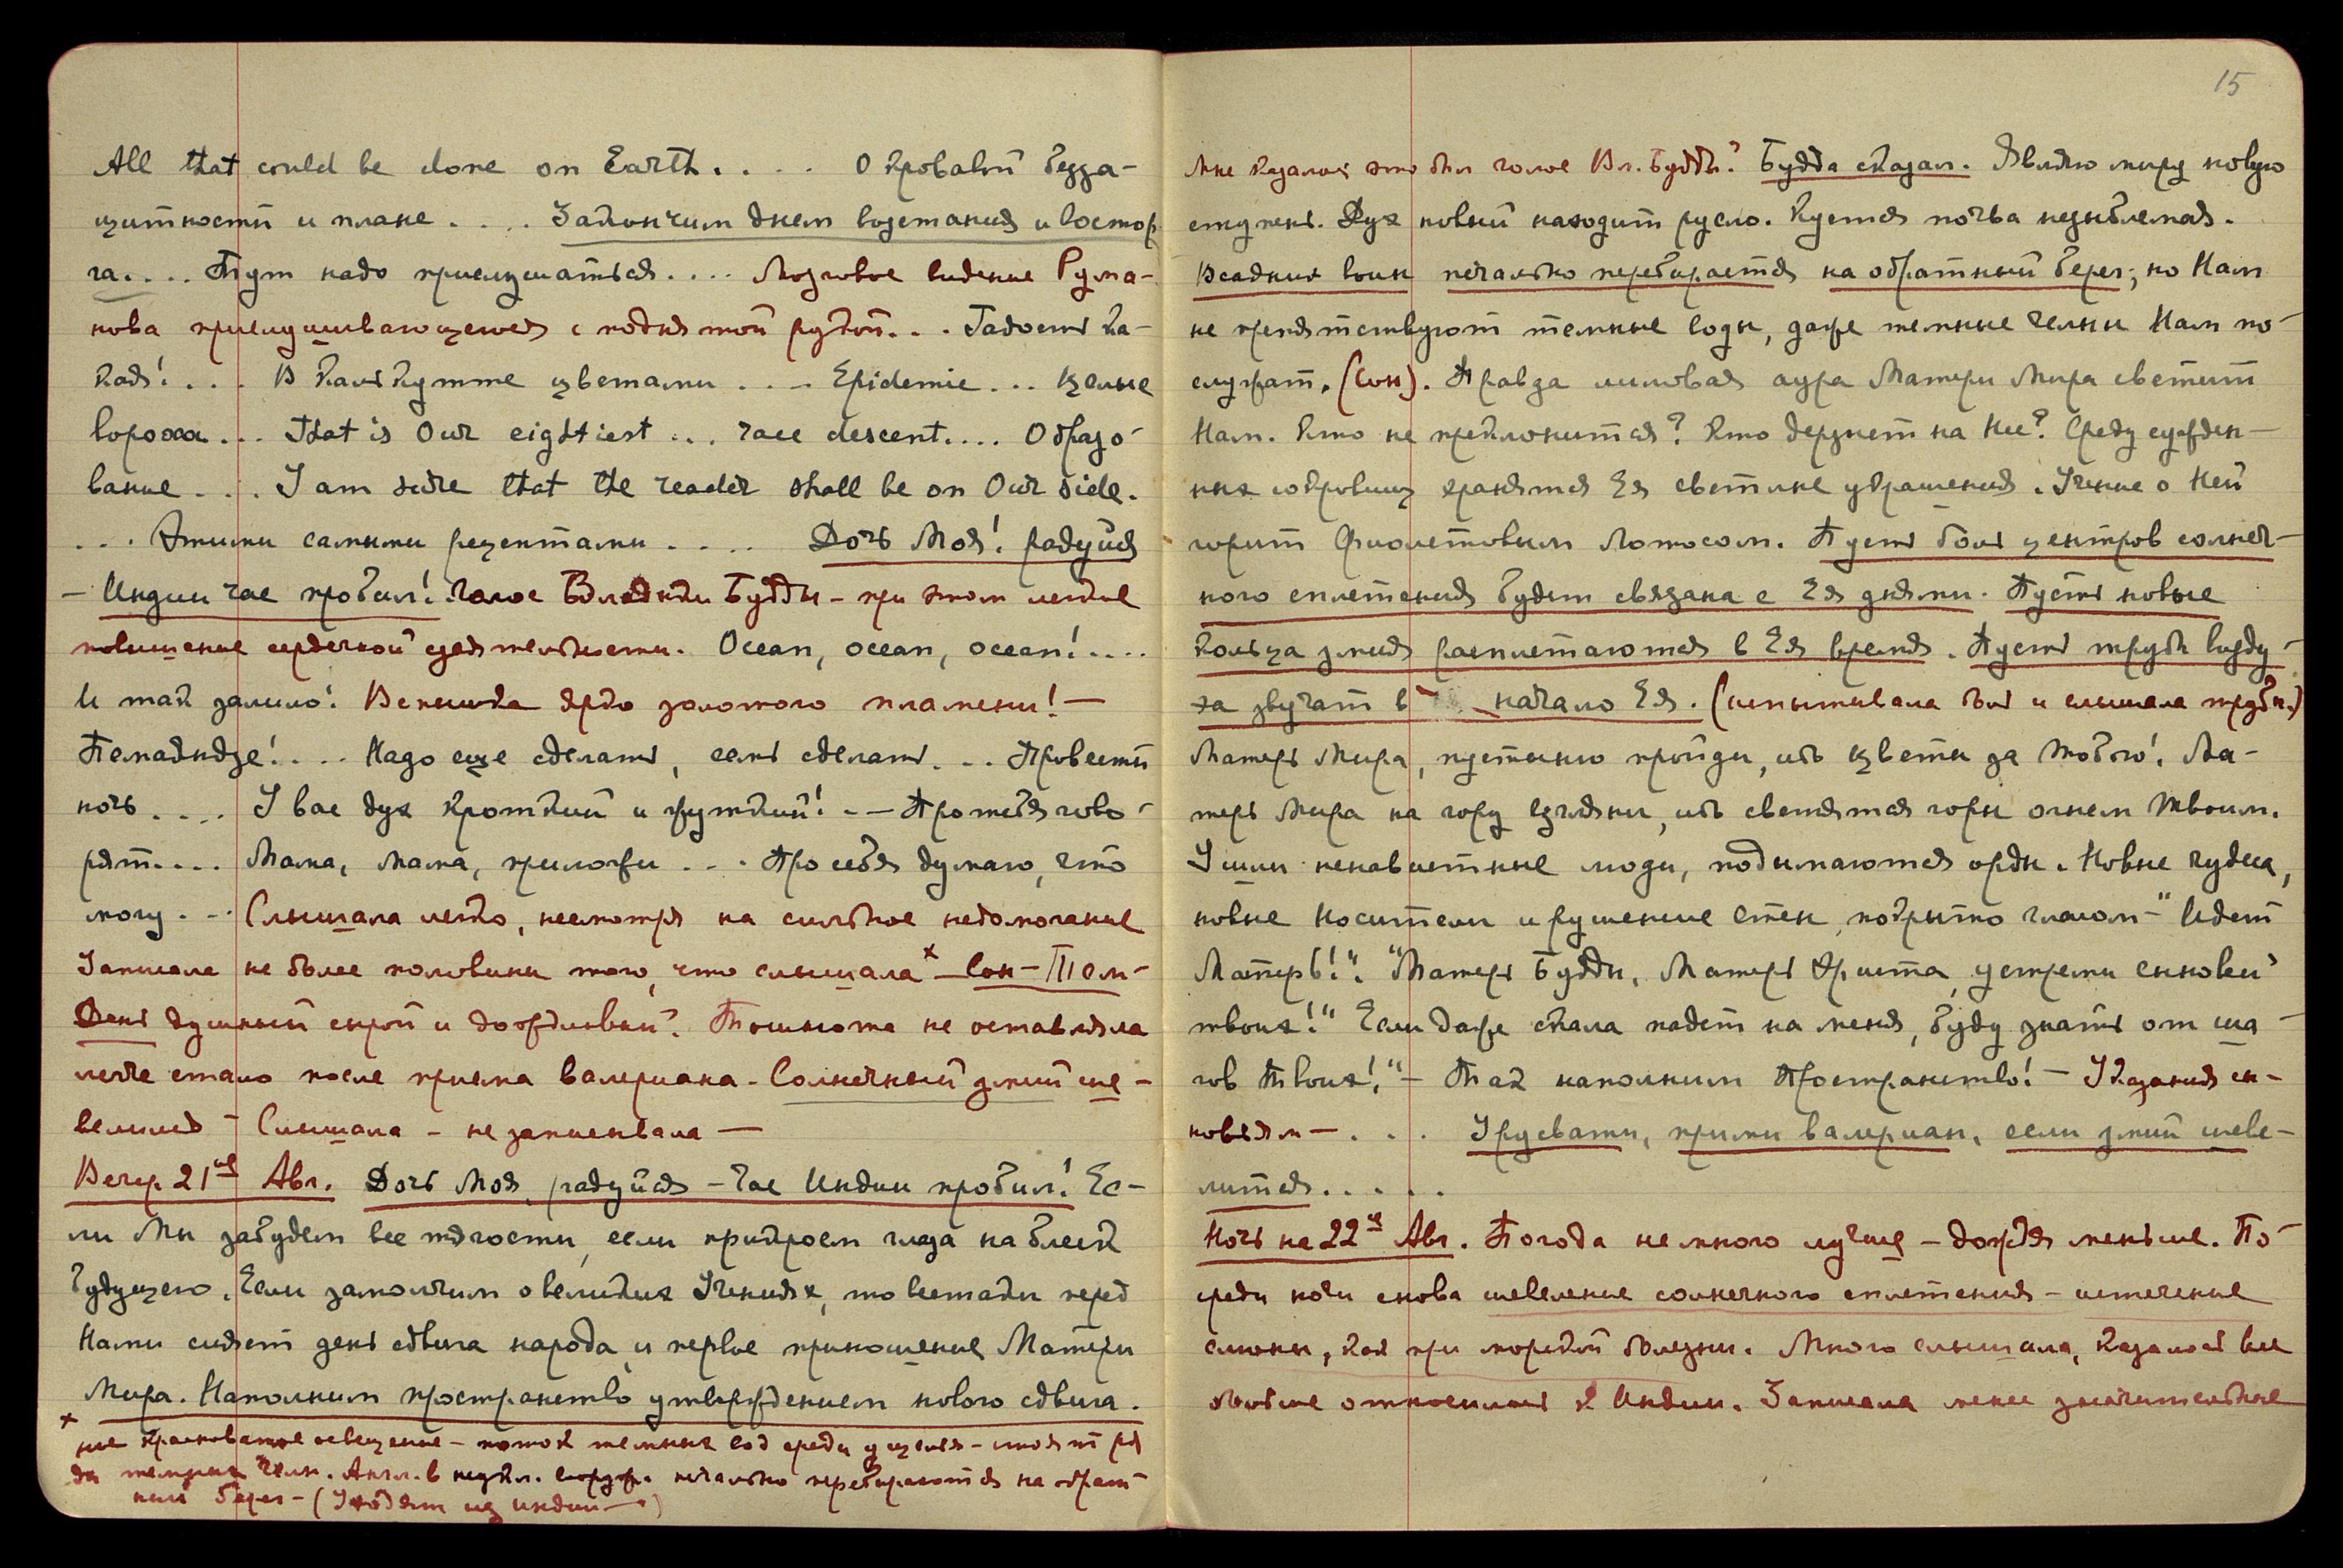 All that could be done on Earth. . . . . О кровавой безза-
щитности и плане . . . . Закончим днем восстания и востор
га. . . . Тут надо прислушаться. . . . Мозговое видение Рума-
нова прислушивающегося с поднятой рукой. . . Гадость ка-
кая! . . . В Калькутте цветами . . . . Epidemic . . . целые
вороха . . . That is Our eightiest . . . race descent. . . . Образо-
вание . . . . I am sure that the reader shall be on Our side.
. . . Этими самыми рецептами . . . . Дочь Моя! радуйся
– Индии час пробил! Голос Владыки Будды – при этом легкое
повышение сердечной деятельности. Ocean, ocean, ocean! . . . .
И так залило! Вспышка ярко золотого пламени! —
. . . . Надо еще сделать, есть сделать. . . Провести
ночь . . . . У вас дух кроткий и чуткий! – — Про тебя гово-
рят. . . . Мама, мама, приложи . . . Про себя думаю, что
могу . . . Слышала легко, несмотря на сильное недомогание
Записала не более половины того, что слышала x – Сон – Тем-
День душный сырой и дождливый. Тошнота не оставляла
легче стало после приема валериана – Солнечный змий ше-
велился – Слышала – не записывала —
Вечер 21го Авг. Дочь Моя, радуйся – час Индии пробил! Ес-
ли Мы забудем все тягости, если прикроем глаза на блеск
будущего. Если замолчим о великих Учениях, то все таки перед
Нами сияет день сдвига народа и первое приношение Матери
Мира. Наполним пространство утверждением нового сдвига.
x ное красноватое освещение – поток темных вод среди ущелья – стоят ря
ды темных челн. Англ. в печально перебираются на обрат
ный берег – (Уходят из Индии –)
15
Мне казалось это был голос Вл. Будды? Будда сказал. Являю миру новую
ступень. Дух новый находит русло. Куется почва незыблемая.
Всадник воин печально перебирается на обратный берег; но Нам
не препятствуют темные воды, даже темные челны Нам по-
служат. (Сон). Правда лиловая аура Матери Мира светит
Нам. Кто не преклонится? Кто дерзнет на Нее? Среди сужден-
ных сокровищ хранятся Ея светлые украшения. Учение о Ней
горит Фиолетовым Лотосом. Пусть боль центров солнеч-
ного сплетения будет связана с Ея днями. Пусть новые
кольца змия расплетаются в Ея время. Пусть трубы возду-
ха звучат в начало Ея. (испытывала боль и слышала трубы.)
Матерь Мира, пустынею пройди, ибо цветы за Тобою! Ма-
терь Мира на гору взгляни, ибо светятся горы огнем Твоим.
Ушли ненавистные люди, подымаются орды. Новые чудеса,
новые носители и рушение стен покрыто гласом – "Идет
Матерь!". "Матерь Будды, Матерь Христа, устреми сынов
твоих!" Если даже скала падет на меня, буду знать от ша-
гов Твоих!" – Так наполним Пространство! – Указания сы-
новьям – . . . Урусвати, прими валериан, если змий шеве-
лится. . . . .
Ночь на 22е Авг. Погода немного лучше – дождя меньше. По-
среди ночи снова шевеление солнечного сплетения – истечение
слюны, как при морской болезни. Много слышала, казалось все
больше относилось к Индии. Записала менее значительное